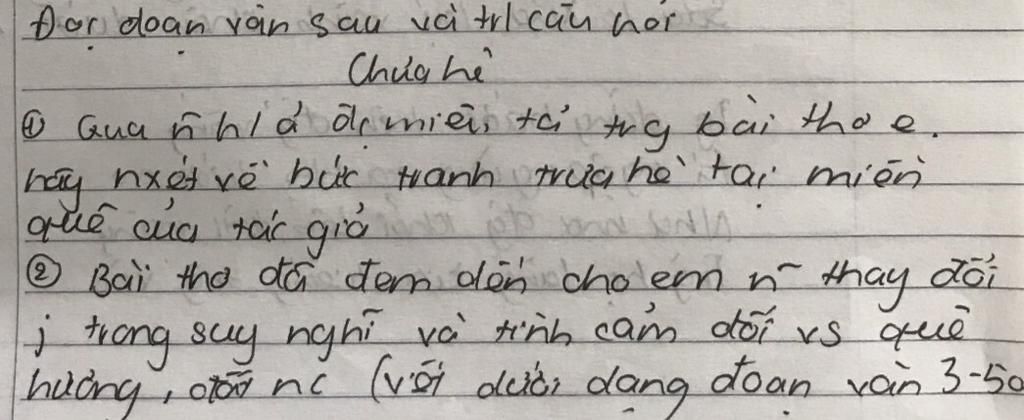 Đọc đoạn văn sau và trl câu hỏi
Chưa hè
① Qua n~ h/ả đc miêu tả trg bài thơ e.
hãy nxét về bức tranh trưa hè tại miền
quê của tác giả
② Bài thơ đã đem đến cho em n~ thay đổi
j trong suy nghĩ và tình cảm đối vs quê
hương, nc (với dưới dạng đoạn văn 3-5